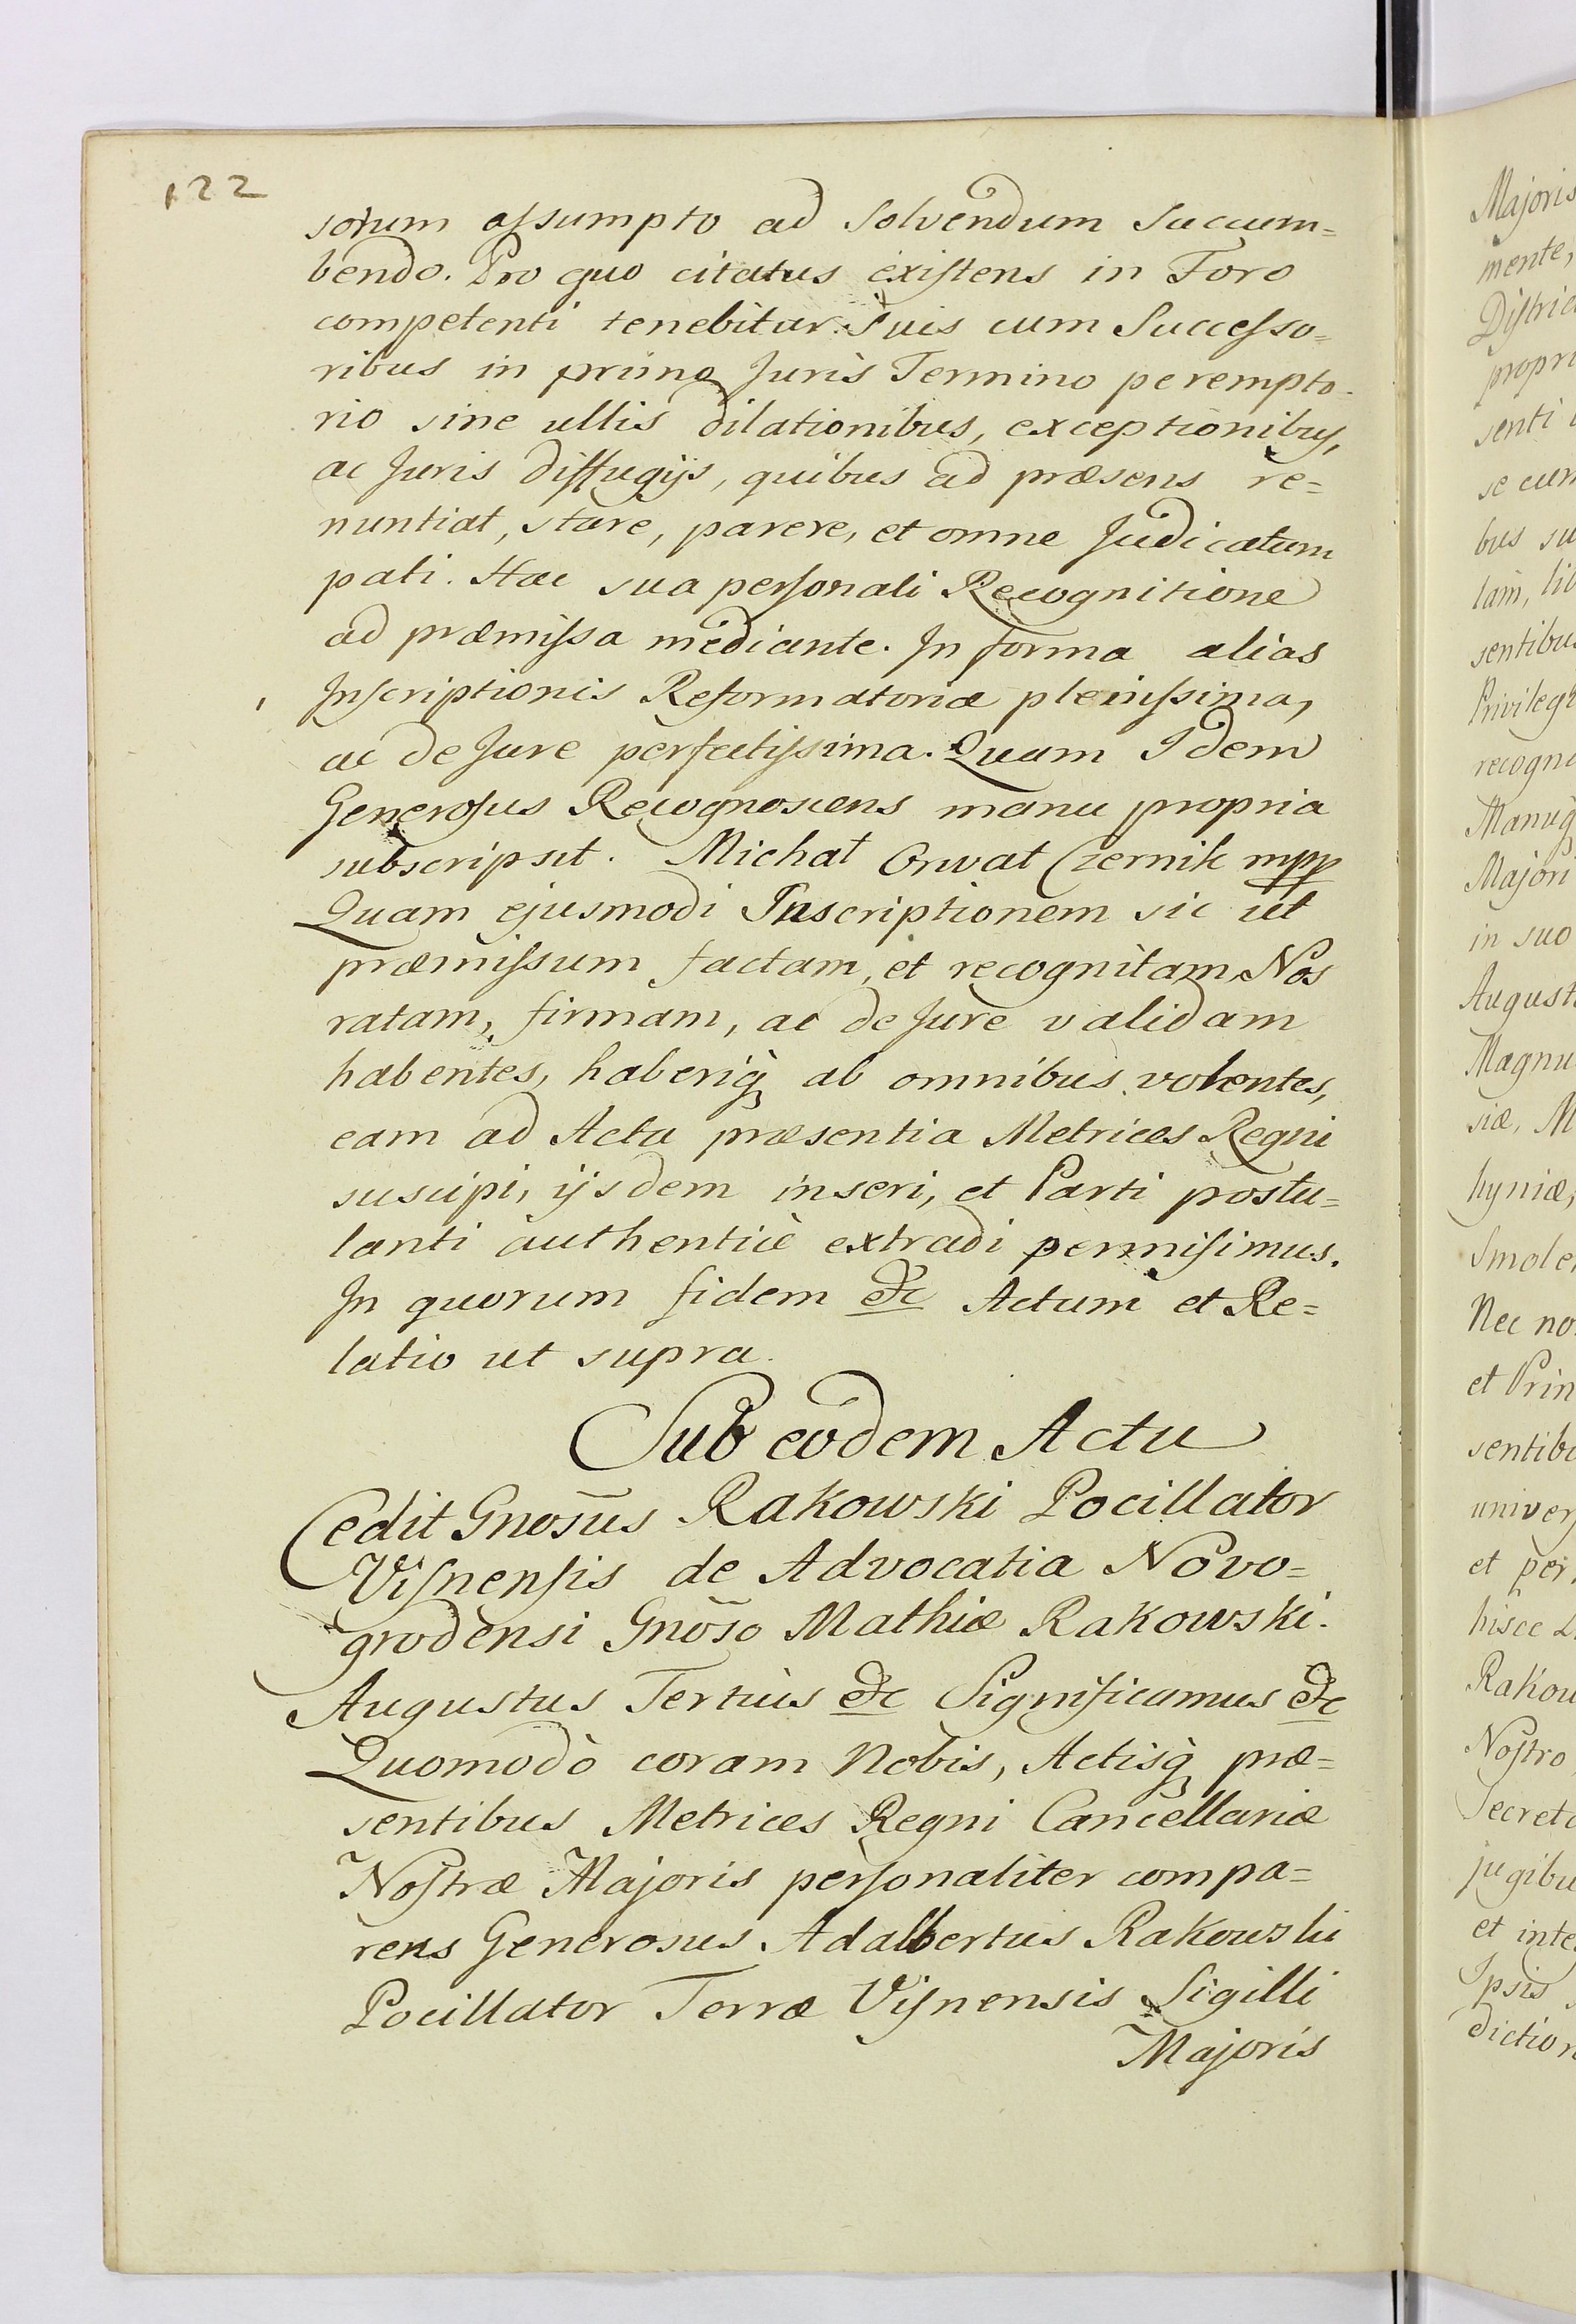 122
sorum assumpto ad Solvendum Succum=
bendo. Pro quo citatus existens in Foro
competenti tenebitur Suis cum Successo=
ribus in primo Juris Termino perempto-
rio sine ullis dilationibus, exceptionibus,
ac Juris diffugijs, quibus ad præsens re=
nuntiat, stare, parere, et omne Judicatum
pati. Hac sua personali Recognitione
ad præmissa mediante. In forma alias
Inscriptionis Reformatoriæ plenissima,
ac de Jure perfectissima. Quam Idem
Generosus Recognoscens manu propria
subscripsit. Michał Orwat Czernik mpp
Quam ejusmodi Inscriptionem sic ut
præmissum factam, et recognitam Nos
ratam, firmam, ac de Jure validam
habentes, haberiq́ ab omnibus volentes,
eam ad Acta præsentia Metrices Regni
suscipi, ijsdem inseri, et Parti postu=
lanti authenticè extradi permisimus.
In quorum fidem &c Actum et Re=
latio ut supra.
Sub eodem Actu
Cedit Gnosus Rakowski Pocillator
Visnensis de Advocatia Novo=
grodensi Gnoso Mathiæ Rakowski.
Augustus Tertius &c Significamus &c
Quomodò coram Nobis, Actisq́ præ=
sentibus Metrices Regni Cancellariæ
Nostræ Majoris personaliter compa=
rens Generosus Adalbertus Rakowski
Pocillator Terræ Visnensis Sigilli
Majoris
Majoris
mente,
propri
senti
se cum
bus su
lam, lib
sentibus
Privileg
recogno
Majori
in suo
August
Magnu
siæ, M
hyniæ,
Smole
Nec no
et Prin
sentib
univers
et per
hisce L
Rakow
Nostro
Secret
jugibu
et inte
Ipsis
diction